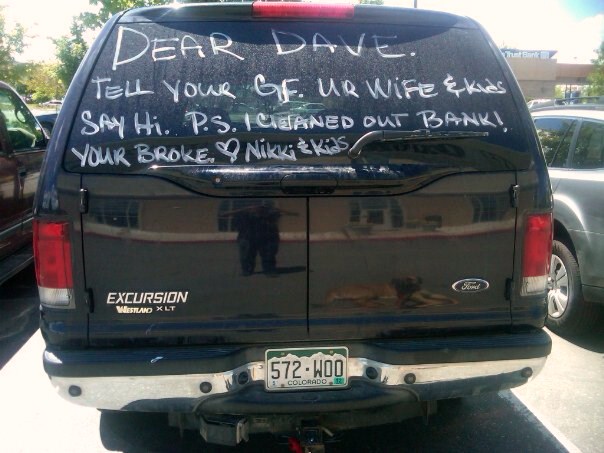 DEAR DAVE.
TELL YOUR GF. UR WIFE & KidS
SAY Hi. P.S. I CLEANED OUT BANK!
YOUR BROKE. ♡ Nikki & KidS
EXCURSION
WESTLAND XLT
Ford
572·WOO
COLORADO